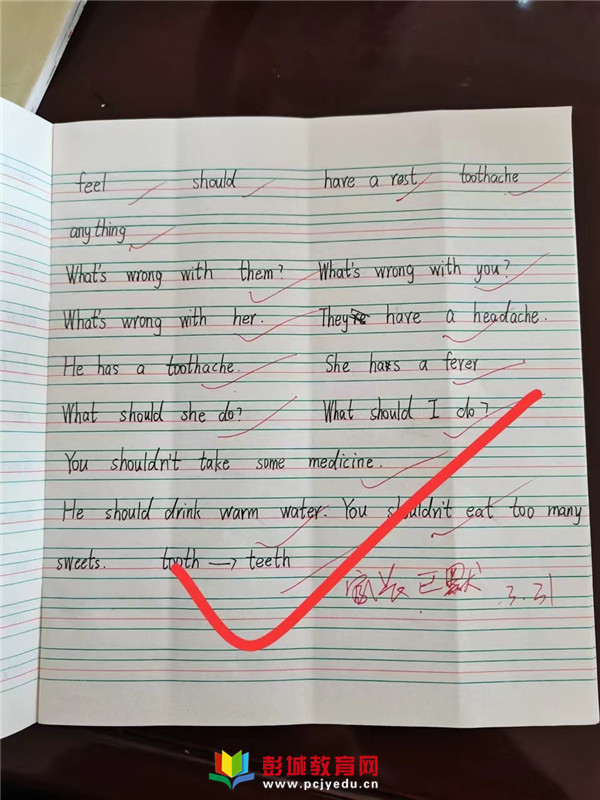 feel should have a rest toothache
anything
What's wrong with them? What's wrong with you?
What's wrong with her. They have a headache.
He has a toothache. She has a fever
What should she do? What should I do?
You shouldn't take some medicine.
He should drink warm water. You shouldn't eat too many
sweets. tooth → teeth
家长已默 3.31
彭城教育网
www.pcjyedu.cn